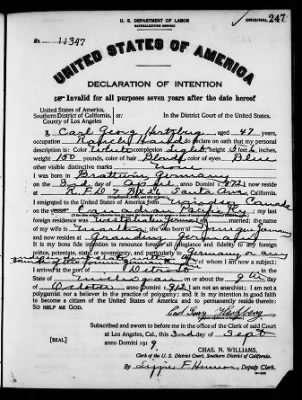 U. S. DEPARTMENT OF LABOR
NATURALIZATION SERVICE
ORIGINAL 247
No. 11347
UNITED STATES OF AMERICA
DECLARATION OF INTENTION
Invalid for all purposes seven years after the date hereof
United States of America,
Southern District of California, ss:
County of Los Angeles
In the District Court of the United States.
I, Carl Georg, aged 47 years,
occupation Ranch Hand, do declare on oath that my personal
description is: Color White, complexion Light, height 5 feet 6 inches,
weight 150 pounds, color of hair Blond, color of eyes Blue
other visible distinctive marks None
I was born in Germany
on the 3rd day of, anno Domini 1872; I now reside
at R.F.D. 7 Box Santa Ana, California.
I emigrated to the United States of America from Canada
on the vessel Canadian Pacific Ry; my last
foreign residence was Germany; I am married; the name
of my wife is Martha; she was born in Germany
and now resides at Germany
It is my bona fide intention to renounce forever all allegiance and fidelity to any foreign
prince, potentate, state, or sovereignty, and particularly to Germany or any
of whom I am now a subject;
I arrived at the port of Detroit, in the
State of Michigan, on or about the 9 day
of October, anno Domini 1912; I am not an anarchist; I am not a
polygamist nor a believer in the practice of polygamy; and it is my intention in good faith
to become a citizen of the United States of America and to permanently reside therein:
SO HELP ME GOD.
Carl Georg
Subscribed and sworn to before me in the office of the Clerk of said Court
at Los Angeles, Cal., this 3rd day of Sept
[SEAL] anno Domini 1919.
CHAS. N. WILLIAMS,
Clerk of the U. S. District Court, Southern District of California.
By, Deputy Clerk.